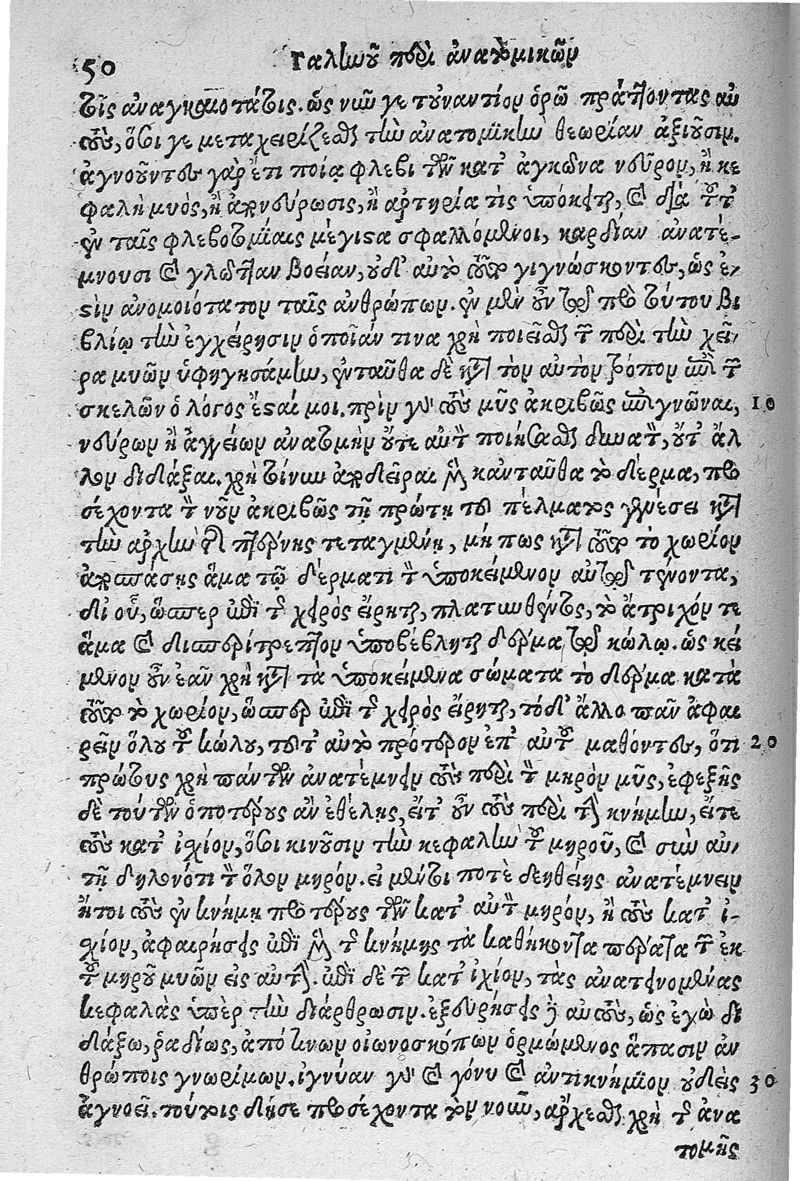 50 Γαληνοῦ περὶ ἀνατομικῶν
τοῖς ἀναγκαιοτάτοις. ὡς νῦν γε τοὐναντίον ὁρῶ πράττοντας αὐ
τοὺς, ὅσοι γε μεταχειρίζεσθαι τὴν ἀνατομικὴν θεωρίαν ἀξιοῦσιν.
ἀγνοοῦντες γὰρ ἔτι ποίᾳ φλεβὶ τῶν κατ' ἀγκῶνα νεῦρον, ἢ κε
φαλὴ μυὸς, ἢ ἀπονεύρωσις, ἢ ἀρτηρία τὶς ὑπόκειται, καὶ διὰ τοῦτ'
ἐν ταῖς φλεβοτομίαις μέγιστα σφαλλόμενοι, καρδίαν ἀνατέ-
μνουσι καὶ γλῶτταν βοείαν, οὐδ' αὐτὸ τοῦτο γιγνώσκοντες, ὡς ἔ-
στιν ἀνομοιότατον ταῖς ἀνθρώπων. ἐν μὲν οὖν τῷ πρὸ τούτου βι
βλίῳ τὴν ἐγχείρησιν ὁποίαν τινα χρὴ ποιεῖσθαι τῶν περὶ τὴν χεῖ-
ρα μυῶν ὑφηγησάμην, ἐνταῦθα δὲ κατὰ τὸν αὐτὸν τρόπον ὑπὲρ τῶν
σκελῶν ὁ λόγος ἔσται μοι. πρὶν γὰρ τοὺς μῦς ἀκριβῶς ἐπιγνῶναι, 10
νεύρων ἢ ἀγγείων ἀνατομὴν οὔτε αὐτὸν ποιήσασθαι δυνατὸν, οὔτ' ἄλ
λον διδάξαι. χρὴ τοίνυν ἀποδεῖραι μὲν κἀνταῦθα τὸ δέρμα, προ
σέχοντα τὸν νοῦν ἀκριβῶς τῇ πρώτῃ τοῦ πέλματος γενέσει κατὰ
τὴν ἀρχὴν τῆς πτέρνης τεταγμένῃ, μή πως κατὰ τοῦτο τὸ χωρίον
ἀποσπάσῃς ἅμα τῷ δέρματι τὸν ὑποκείμενον αὐτῷ τένοντα,
δι' οὗ, ὥσπερ ἐπὶ τῆς χειρὸς εἴρηται, πλατυνθέντος, τὸ ἄτριχόν τε
ἅμα καὶ δυσπερίτρεπτον ὑποβέβληται δέρμα τῷ κώλῳ. ὡς κεί
μενον οὖν ἐᾶν χρὴ κατὰ τὰ ὑποκείμενα σώματα τὸ δέρμα κατὰ
τοῦτο τὸ χωρίον, ὥσπερ ἐπὶ τῆς χειρὸς εἴρηται, τὸ δ' ἄλλο πᾶν ἀφαι
ρεῖν ὅλου τοῦ κώλου, τοῦτ' αὐτὸ πρότερον ἐπ' αὐτοῦ μαθόντες, ὅτι 20
πρώτους χρὴ πάντων ἀνατέμνειν τοὺς περὶ τὸν μηρὸν μῦς, ἐφεξῆς
δὲ τούτων ὁποτέρους ἂν ἐθέλῃς, εἴτ' οὖν τοὺς περὶ τὴν κνήμην, εἴτε
τοὺς κατ' ἰσχίον, ὅσοι κινοῦσιν τὴν κεφαλὴν τοῦ μηροῦ, καὶ σὺν αὐ-
τῇ δηλονότι τὸν ὅλον μηρόν. εἰ μέντοι ποτὲ δεηθείης ἀνατέμνειν
ἤτοι τοὺς ἐν κνήμῃ προτέρους τῶν κατ' αὐτὸν μηρόν, ἢ τοὺς κατ' ἰ-
σχίον, ἀφαιρήσεις ἐπὶ μὲν τῆς κνήμης τὰ καθήκοντα πέρατα τῶν ἐκ
τοῦ μηροῦ μυῶν εἰς αὐτήν. ἐπὶ δὲ τῶν κατ' ἰσχίον, τὰς ἀνατεινομένας
κεφαλὰς ὑπὲρ τὴν διάρθρωσιν. ἐξευρήσεις δὲ αὐτοὺς, ὡς ἐγὼ δι
δάξω, ῥᾳδίως, ἀπό τινων οἰωνοσκόπων ὁρμώμενος ἅπασιν ἀν
θρώποις γνωρίμων. ἰγνύαν γὰρ καὶ γόνυ καὶ ἀντικνήμιον οὐδεὶς 30
ἀγνοεῖ. τούτοις δή σε προσέχοντα τὸν νοῦν, ἄρχεσθαι χρὴ τῆς ἀνα
τομῆς